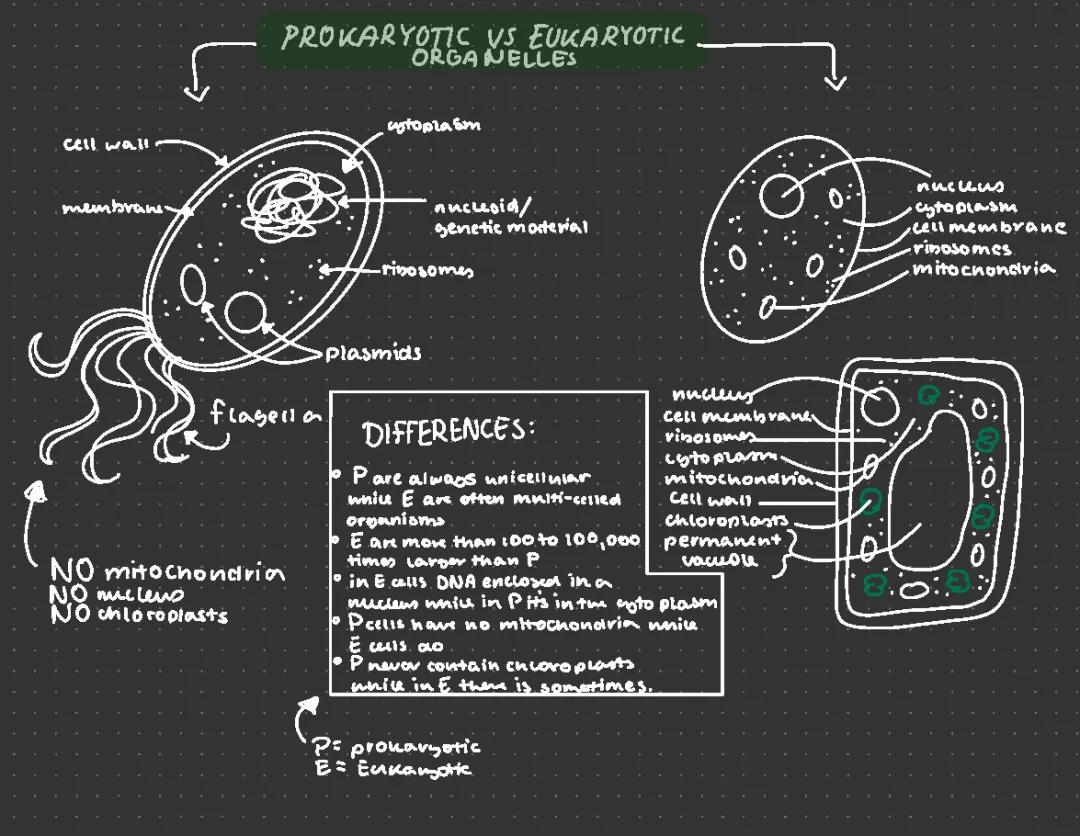 PROKARYOTIC VS EUKARYOTIC
ORGANELLES
cell wall
membrane
cytoplasm
nucleoid/
genetic material
ribosomes
plasmids
flagella
NO mitochondria
NO nucleus
NO chloroplasts
nucleus
cytoplasm
cell membrane
ribosomes
mitochondria
nucleus
cell membrane
ribosomes
cytoplasm
mitochondria
cell wall
chloroplasts
permanent
vacuole
DIFFERENCES:
• P are always unicellular
while E are often multi-celled
organisms
• E are more than 100 to 100,000
times larger than P
• in E cells DNA enclosed in a
nucleus while in P it's in the cytoplasm
• P cells have no mitochondria while
E cells do
• P never contain chloroplasts
while in E there is sometimes.
P= prokaryotic
E= Eukaryotic